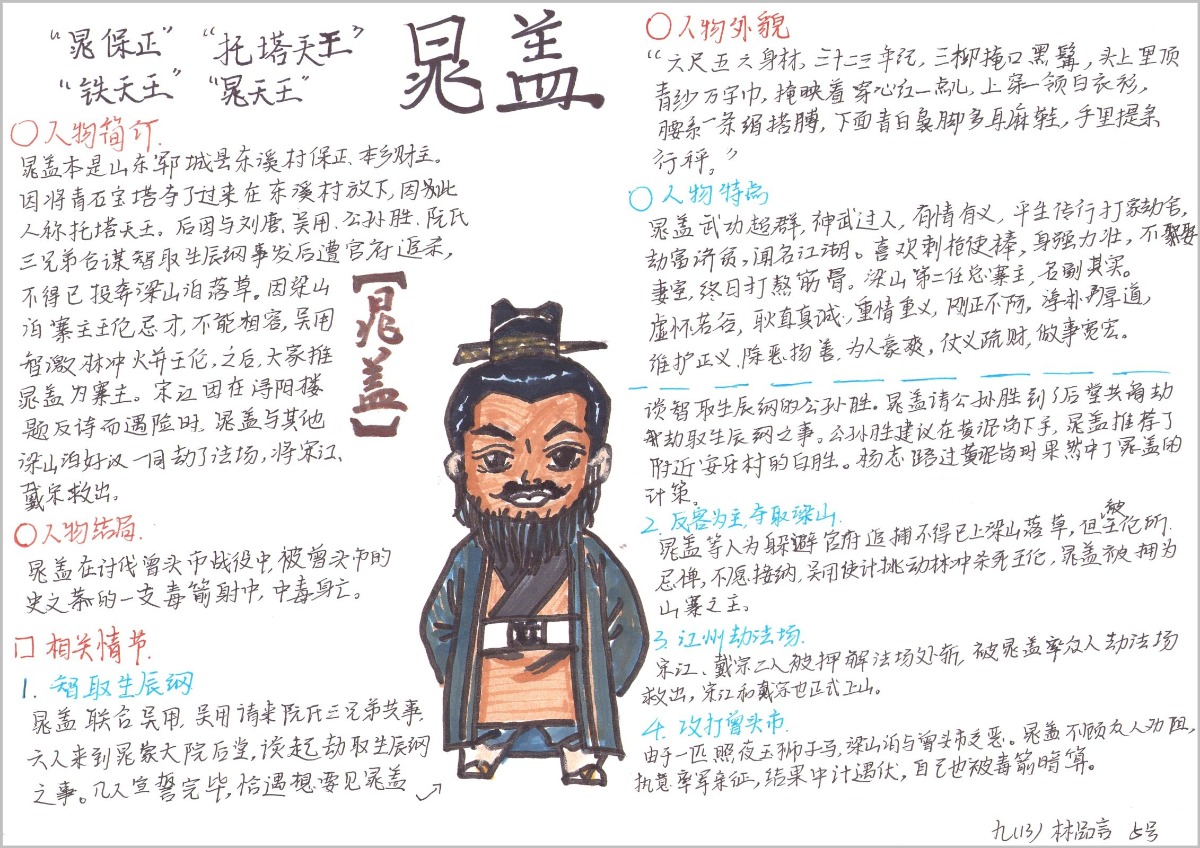 “晁保正” “托塔天王”
“铁天王” “晁天王”
晁盖
〇人物简介.
晁盖本是山东郓城县东溪村保正、本乡财主。
因将青石宝塔夺了过来在东溪村放下,因此
人称托塔天王。后因与刘唐、吴用、公孙胜、阮氏
三兄弟合谋智取生辰纲事发后遭官府追杀,
不得已投奔梁山泊落草。因梁山
泊寨主王伦忌才,不能相容,吴用
智激林冲火并王伦,之后,大家推
晁盖为寨主。宋江因在浔阳楼
题反诗而遇险时,晁盖与其他
梁山泊好汉一同劫了法场,将宋江、
戴宗救出。
【晁盖】
〇人物结局.
晁盖在讨伐曾头市战役中,被曾头市的
史文恭的一支毒箭射中,中毒身亡。
口相关情节.
1. 智取生辰纲
晁盖联合吴用,吴用请来阮氏三兄弟共事.
六人来到晁家大院后堂,谈起劫取生辰纲
之事。几人宣誓完毕,恰遇想要见晁盖
〇人物外貌
“六尺五六身材,三十二三年纪,三柳掩口黑髯,头上里顶
青纱万字巾,掩映着穿心红一点儿,上穿一领白衣衫,
腰系一条绢搭膊,下面青白袅脚多耳麻鞋,手里提条
行秤。”
〇人物特点
晁盖武功超群,神武过人,有情有义,平生传行打家劫舍,
劫富济贫,闻名江湖。喜欢刺枪使棒,身强力壮,不娶
妻室,终日打熬筋骨。梁山第二任总寨主,名副其实。
虚怀若谷,耿直真诚,重情重义,刚正不阿,淳朴厚道,
维护正义,除恶扬善,为人豪爽,仗义疏财,做事宽宏。
谈智取生辰纲的公孙胜。晁盖请公孙胜到后堂共商劫
劫取生辰纲之事。公孙胜建议在黄泥岗下手,晁盖推荐了
附近安乐村的白胜。杨志路过黄泥岗时果然中了晁盖的
计策。
2. 反客为主,夺取梁山.
晁盖等人为躲避官府追捕不得已上梁山落草,但被王伦所
忌惮,不愿接纳,吴用使计挑动林冲杀死王伦,晁盖被拥为
山寨之主。
3. 江州劫法场.
宋江、戴宗二人被押解法场处斩,被晁盖率众人劫法场
救出,宋江和戴宗也正式上山。
4. 攻打曾头市.
由于一匹照夜玉狮子马,梁山泊与曾头市交恶。晁盖不顾众人劝阻,
执意率军亲征,结果中计遇伏,自己也被毒箭暗算。
九(13) 林品言 5号